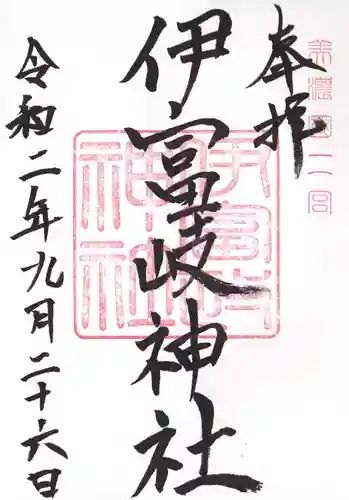 奉拝
美濃國二宮
伊富岐神社
伊富岐神社
令和二年九月二十六日